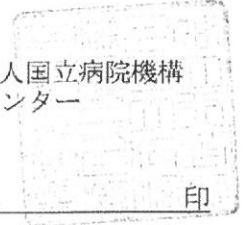 人国立病院機構
ンター
印